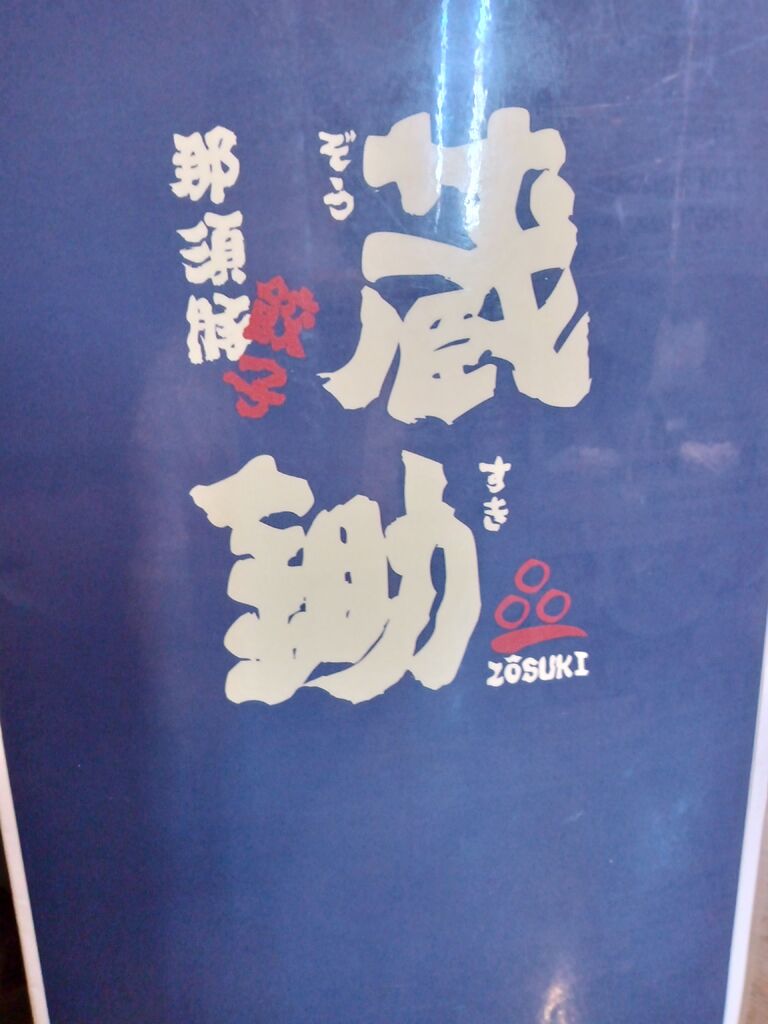 蔵
ぞう
鋤
すき
ZŌSUKI
那須豚
餃子